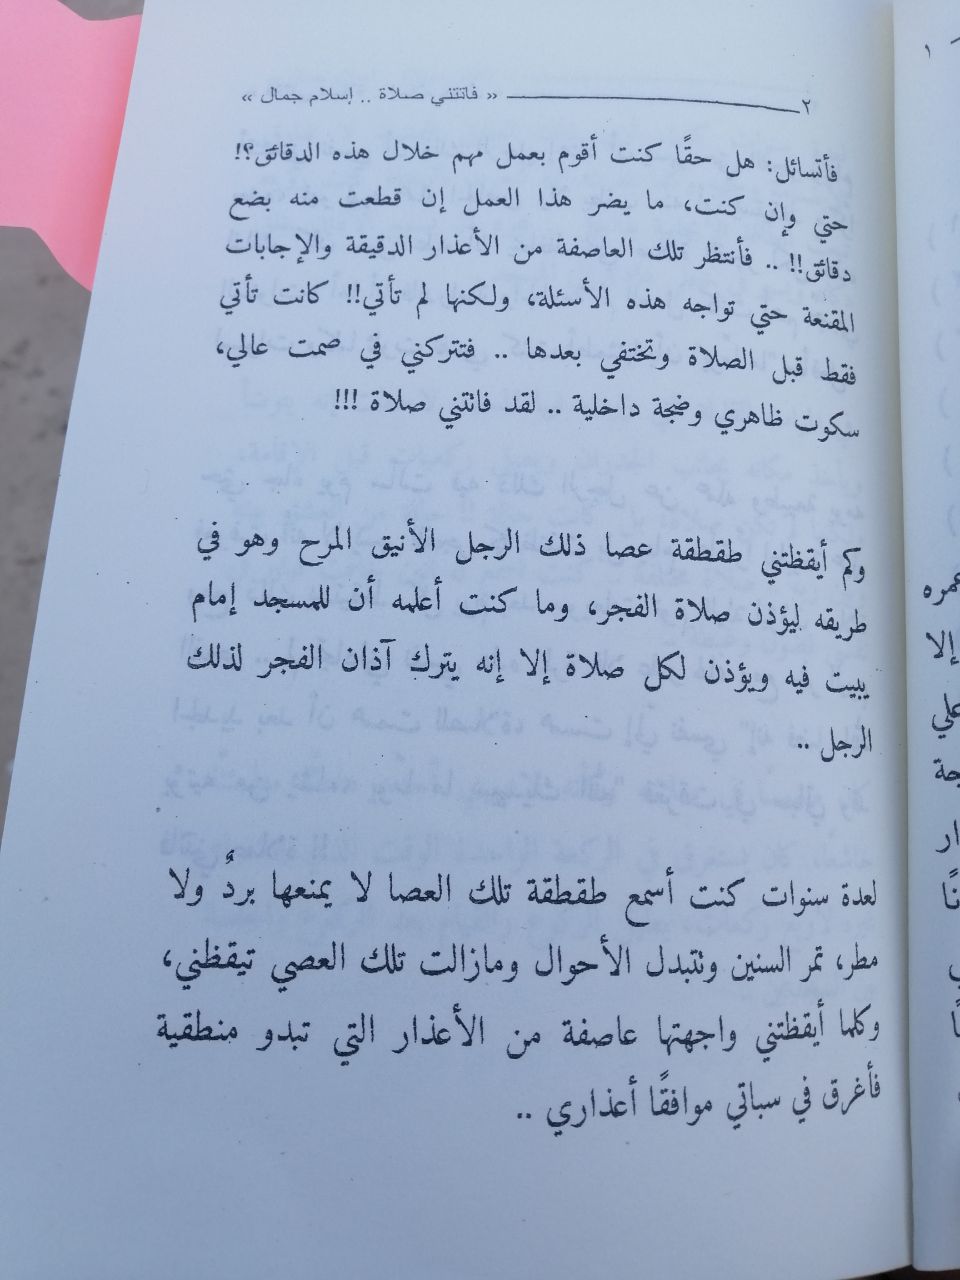 ٢ « فاتتني صلاة .. إسلام جمال »
فأتسائل: هل حقًا كنت أقوم بعمل مهم خلال هذه الدقائق؟!
حتي وإن كنت، ما يضر هذا العمل إن قطعت منه بضع
دقائق!! .. فأنتظر تلك العاصفة من الأعذار الدقيقة والإجابات
المقنعة حتي تواجه هذه الأسئلة، ولكنها لم تأتي!! كانت تأتي
فقط قبل الصلاة وتختفي بعدها .. فتتركني في صمت عالي،
سكوت ظاهري وضجة داخلية .. لقد فاتتني صلاة !!!
وكم أيقظتني طقطقة عصا ذلك الرجل الأنيق المرح وهو في
طريقه ليؤذن صلاة الفجر، وما كنت أعلمه أن للمسجد إمام
يبيت فيه ويؤذن لكل صلاة إلا إنه يترك آذان الفجر لذلك
الرجل ..
لعدة سنوات كنت أسمع طقطقة تلك العصا لا يمنعها بردٌ ولا
مطر، تمر السنين وتتبدل الأحوال ومازالت تلك العصي تيقظني،
وكلما أيقظتني واجهتها عاصفة من الأعذار التي تبدو منطقية
فأغرق في سباتي موافقًا أعذاري ..
١
عمره
إلا
علي
جة
ار
نًا